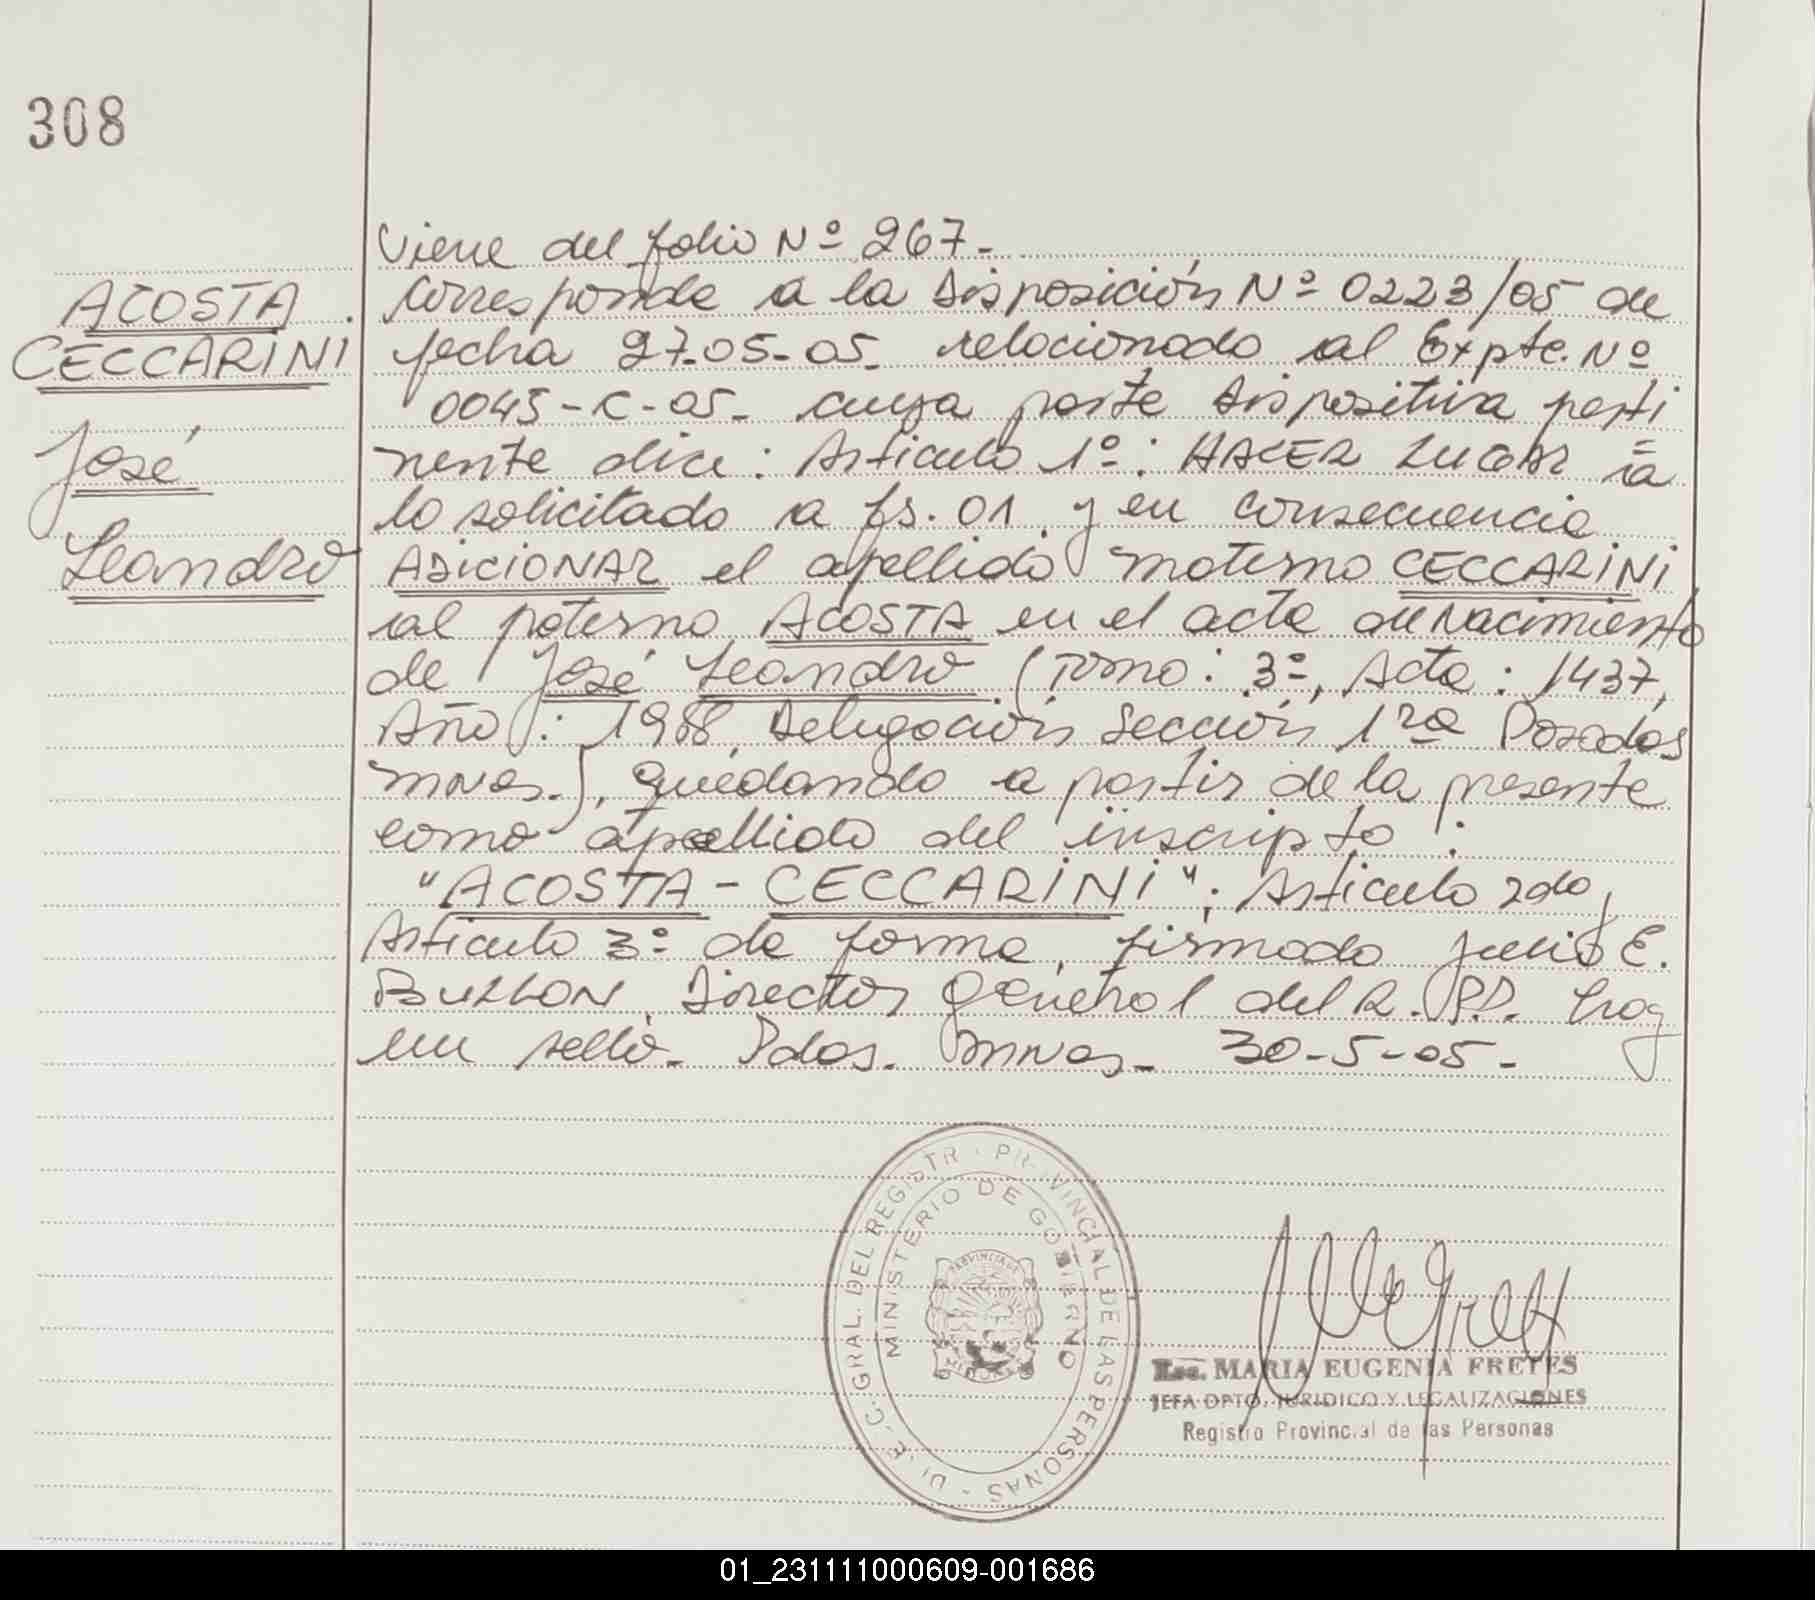 308
Viene del folio Nº 267-
ACOSTA
CECCARINI
José
Leandro
Corresponde a la Disposición Nº 0223/05 de
fecha 27-05-05- relacionado al Expte. Nº
0045-C-05- cuya parte dispositiva perti
nente dice: Artículo 1º: HACER LUGAR a
lo solicitado a fs. 01, y en consecuencia
ADICIONAR el apellido materno CECCARINI
al paterno ACOSTA en el acta de Nacimiento
de José Leandro (Tomo: 3º, Acta: 1437,
Año: 1988, Delegación Sección 1ra Posadas
Mnes.), quedando a partir de la presente
como apellido del inscripto:
"ACOSTA - CECCARINI"; Artículo 2do,
Artículo 3º de forma, firmado Julio E.
Director General del R.P.P. Hay
un sello- Pdas. Mnes- 30-5-05-
GRAL. DEL REGISTR PROVINCIAL DE LAS PERSONAS
MINISTERIO DE GOBIERNO
PROVINCIA DE
MARIA EUGENIA FREYES
JEFA DPTO. JURIDICO Y LEGALIZACIONES
Registro Provincial de las Personas
01_231111000609-001686